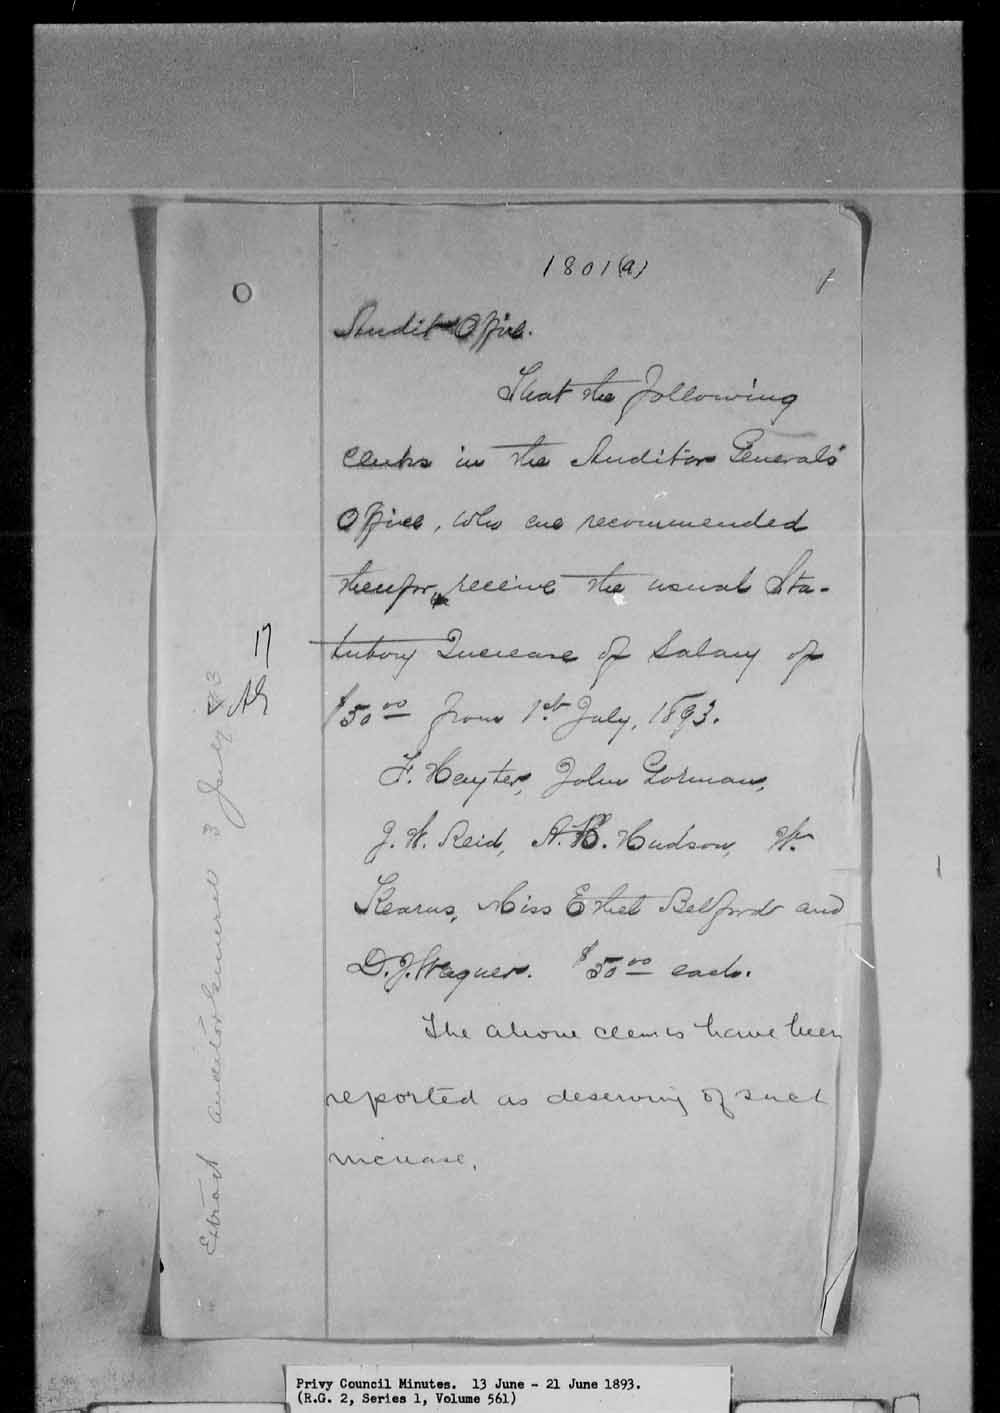 1801(a)
Audit Office.
That the following
Clerks in the Auditor Generals'
Office, who are recommended
therefor, receive the usual Sta-
tutory Increase of Salary of
$50 00 from 1st July, 1893.
F. Hayter, John Gorman,
J. W. Reid, A. H. Hudson, W.
Kearns, Miss Ethel Belford and
D. J. Wagner. $50 00 each.
The above clerks have been
reported as deserving of such
increase.
17
Extract Auditor General 3 July 93
Privy Council Minutes. 13 June - 21 June 1893.
(R.G. 2, Series 1, Volume 561)